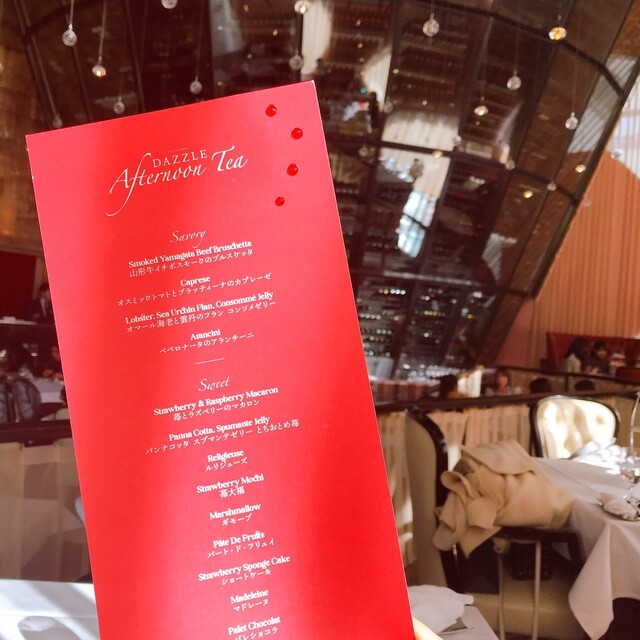 DAZZLE
Afternoon Tea
Savory
Smoked Yamagata Beef Bruschetta
山形牛イチボスモークのブルスケッタ
Caprese
オスミックトマトとブラッティーナのカプレーゼ
Lobster, Sea Urchin Flan, Consommé Jelly
オマール海老と雲丹のフラン コンソメゼリー
Arancini
ペペロナータのアランチーニ
Sweet
Strawberry & Raspberry Macaron
苺とラズベリーのマカロン
Panna Cotta, Spumante Jelly
パンナコッタ スプマンテゼリー とちおとめ苺
Religieuse
ルリジューズ
Strawberry Mochi
苺大福
Marshmallow
ギモーブ
Pâte De Fruits
パート・ド・フリュイ
Strawberry Sponge Cake
ショートケーキ
Madeleine
マドレーヌ
Palet Chocolat
パレショコラ